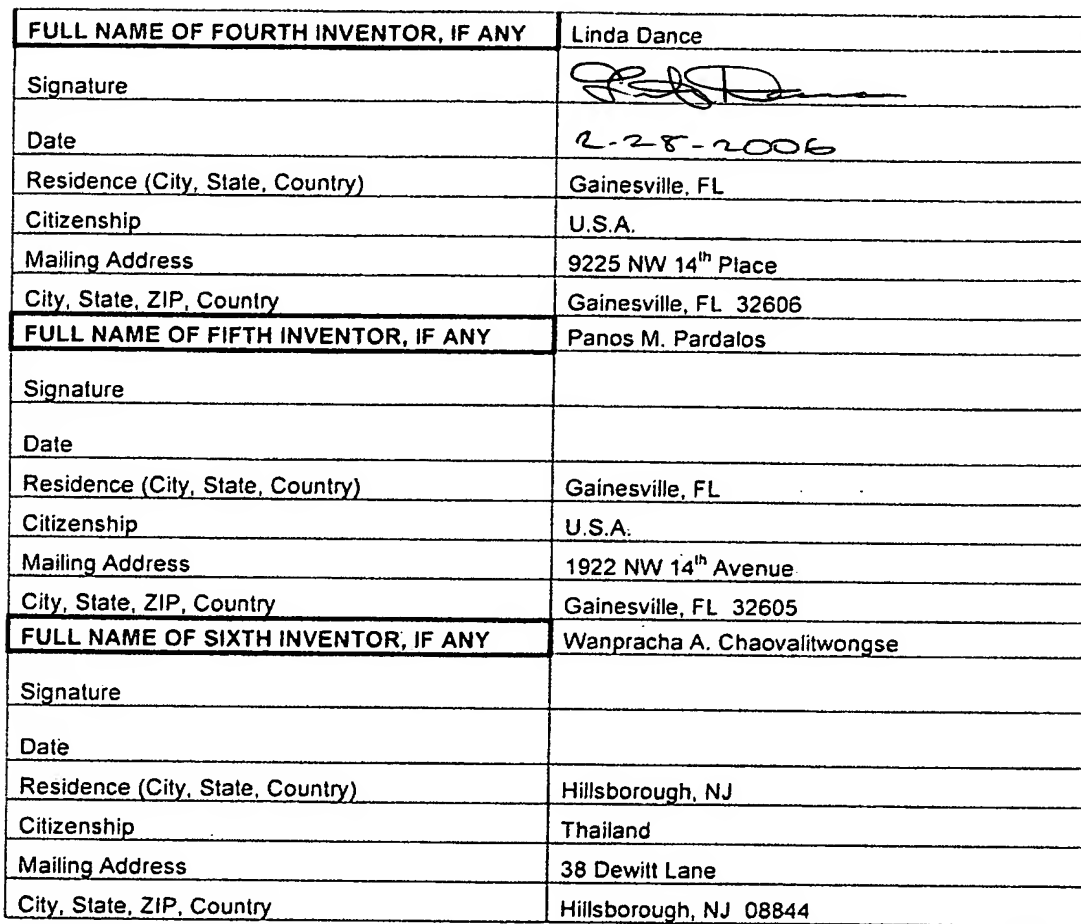 FULL NAME OF FOURTH INVENTOR, IF ANY Linda Dance
Signature
Date 2-28-2006
Residence (City, State, Country) Gainesville, FL
Citizenship U.S.A.
Mailing Address 9225 NW 14th Place
City, State, ZIP, Country Gainesville, FL 32606
FULL NAME OF FIFTH INVENTOR, IF ANY Panos M. Pardalos
Signature
Date
Residence (City, State, Country) Gainesville, FL
Citizenship U.S.A.
Mailing Address 1922 NW 14th Avenue
City, State, ZIP, Country Gainesville, FL 32605
FULL NAME OF SIXTH INVENTOR, IF ANY Wanpracha A. Chaovalitwongse
Signature
Date
Residence (City, State, Country) Hillsborough, NJ
Citizenship Thailand
Mailing Address 38 Dewitt Lane
City, State, ZIP, Country Hillsborough, NJ 08844